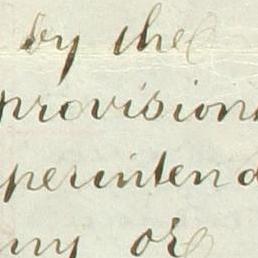 by the
provision
perintend
ny or